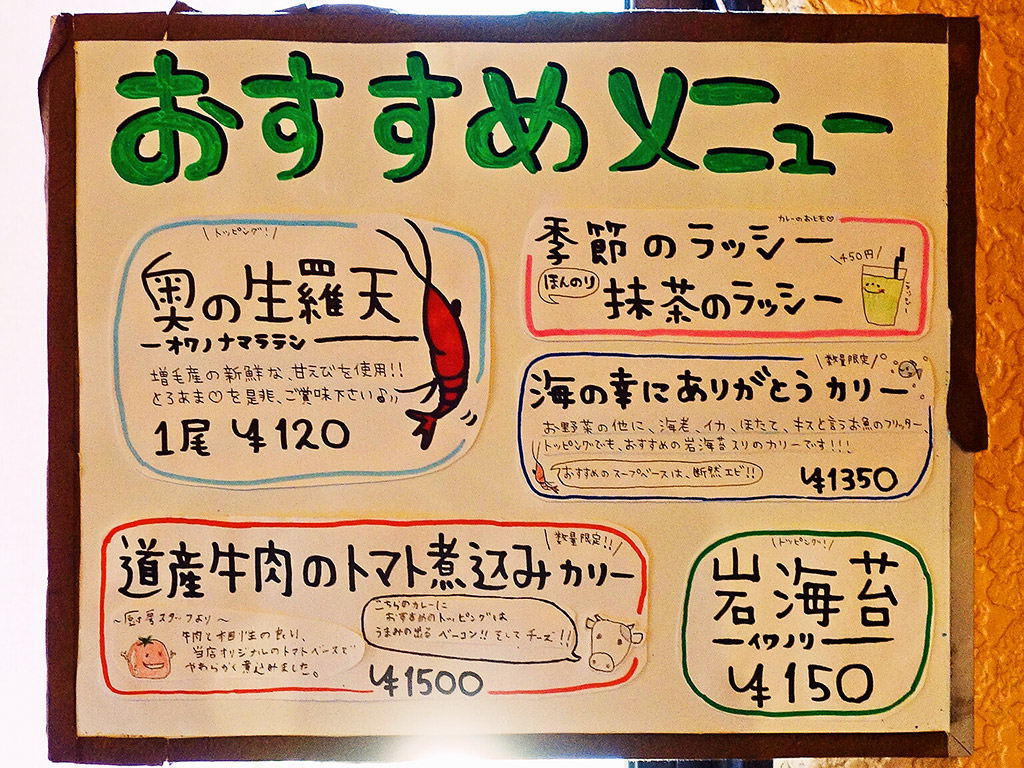 おすすめメニュー
\トッピング!/
奥の生羅天
ーオクノナマラテンー
増毛産の新鮮な、甘えびを使用!!
とろあま♡を是非、ご賞味下さい♪
1尾 ¥120
カレーのおとも♡
季節のラッシー
\450円/
ほんのり
抹茶のラッシー
\数量限定/
海の幸にありがとうカリー
お野菜の他に、海老、イカ、ほたて、キスと言うお魚のフリッター
トッピングでも、おすすめの岩海苔入りのカリーです!!!
おすすめのスープベースは、断然エビ!!
¥1350
\数量限定!!/
道産牛肉のトマト煮込みカリー
〜厨房スタッフより〜
牛肉と相性の良い、
当店オリジナルのトマトベースで
やわらかく煮込みました。
こちらのカレーに
おすすめのトッピングは
うまみの出る ベーコン!! そして チーズ!!
¥1500
\トッピング!/
岩海苔
ーイワノリー
¥150